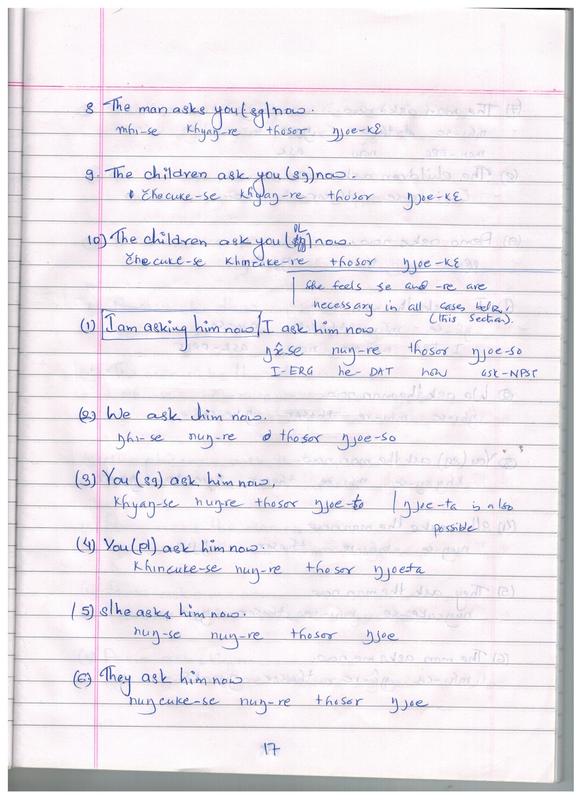 8 The man asks you (sg) now.
mhi-se khyaŋ-re thosor ŋjoe-kɛ
9. The children ask you (sg) now.
čhecuke-se khyaŋ-re thosor ŋjoe-kɛ
10) The children ask you (PL) now.
čhecuke-se khincuke-re thosor ŋjoe-kɛ
she feels se and -re are
necessary in all cases below
(this section).
(1) I am asking him now / I ask him now
se nuŋ-re thosor ŋjoe-so
I-ERG he-DAT now ask-NPST
(2) We ask him now.
ŋhi-se nuŋ-re thosor ŋjoe-so
(3) You (sg) ask him now.
khyaŋ-se nuŋ-re thosor | ŋjoe-ta is also
possible
(4) You (pl) ask him now.
khincuke-se nuŋ-re thosor ŋjoeta
(5) s/he asks him now.
nuŋ-se nuŋ-re thosor ŋjoe
(6) They ask him now
nuŋcuke-se nuŋ-re thosor ŋjoe
17